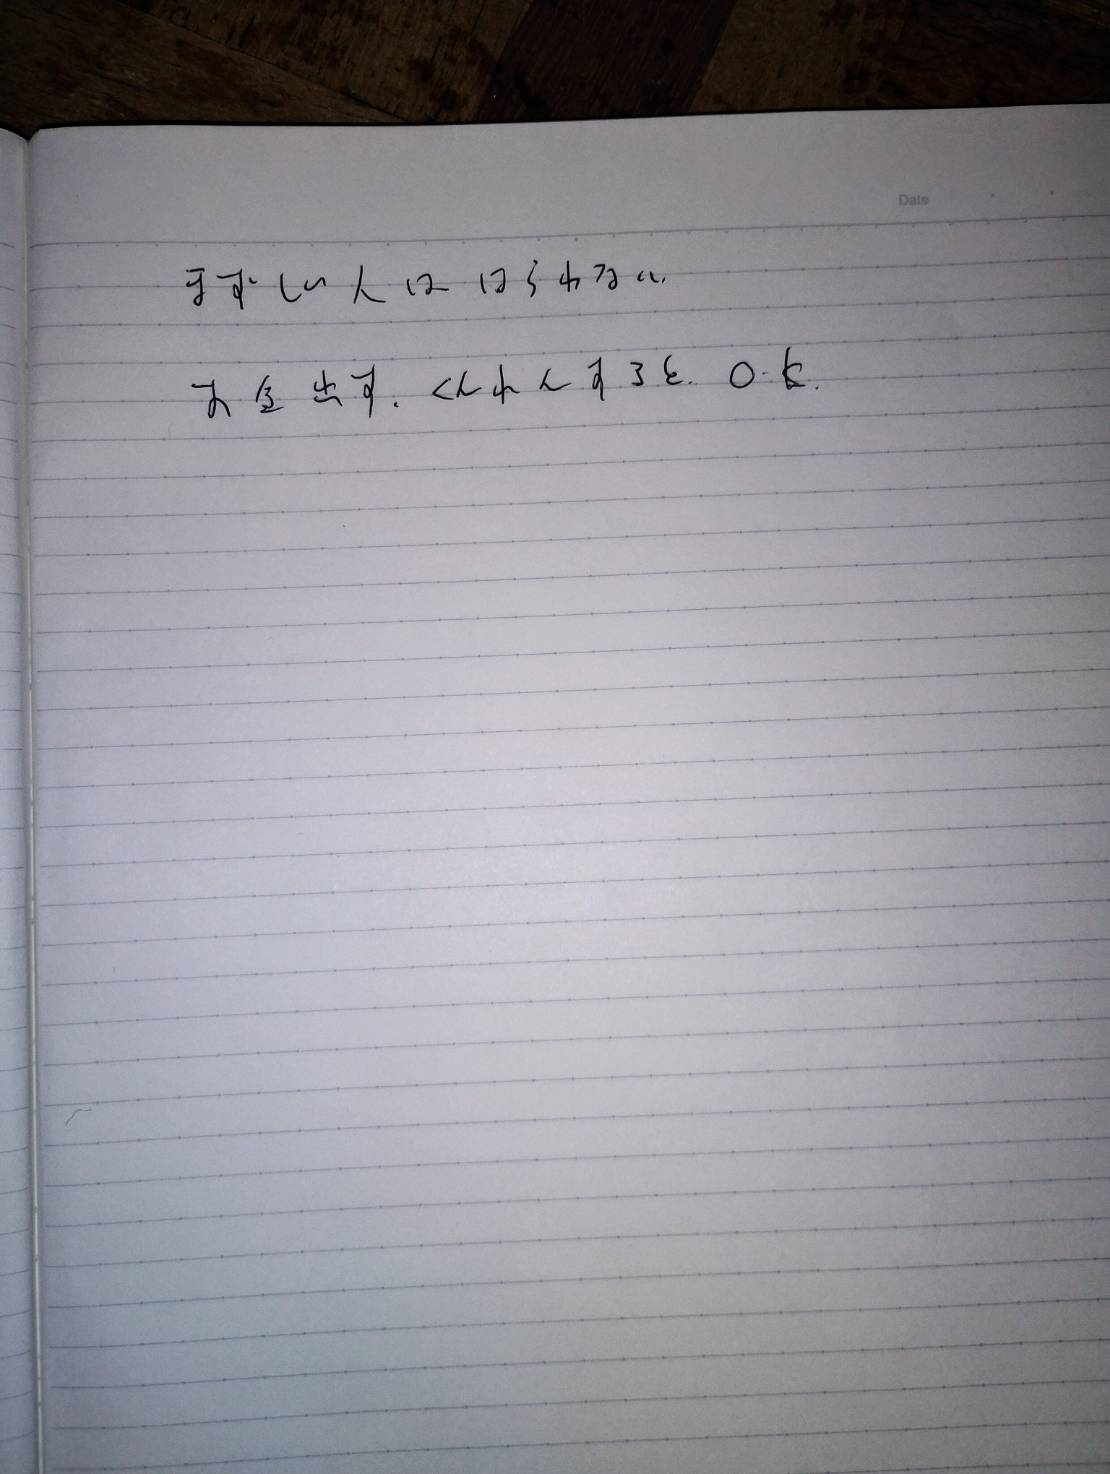 Date
まずしい人は はらわない.
お金出す. くんれんすると. O.K.